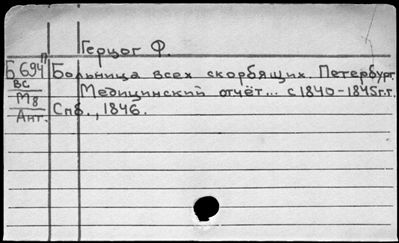 Герцог Ф.
Б 694 п Больница всех скорбящих. Петербург.
ВС
Медицинский отчёт... с 1840-1845г.г.
М8
Спб., 1846.
Анг.